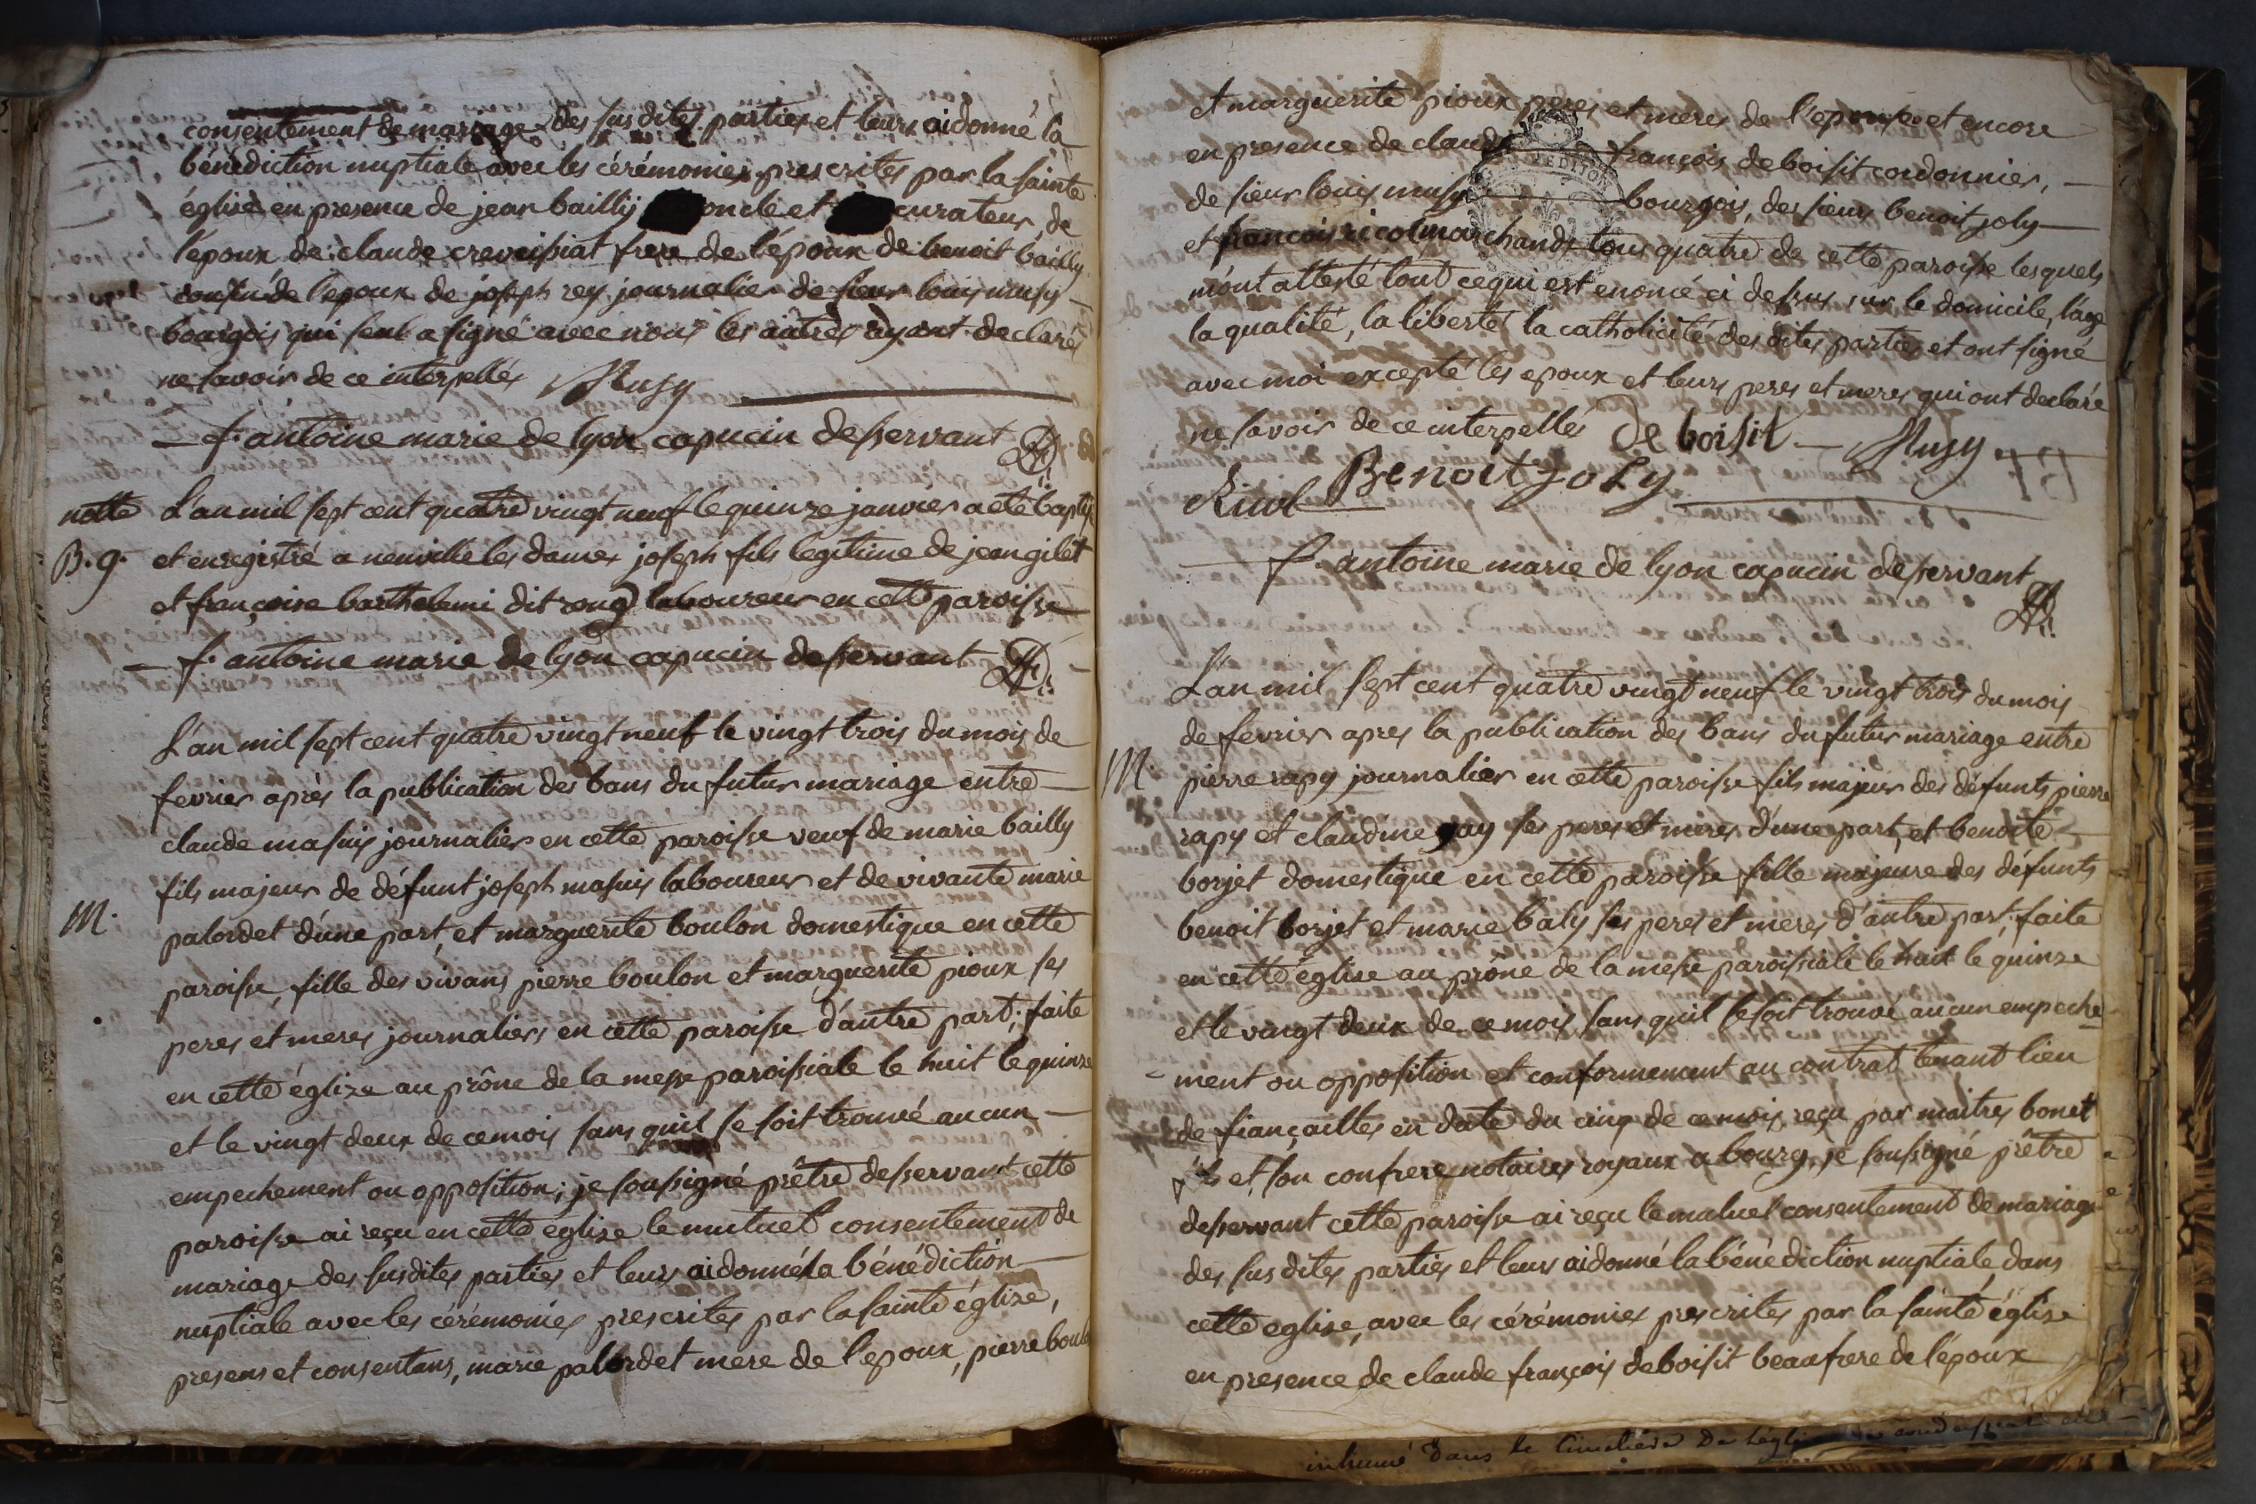 consentement de mariage des susdites parties et leurs ai donné la
bénédiction nuptiale avec les cérémonies prescrites par la sainte
église en presence de jean bailly oncle et curateur de
l'époux de claude creveissiat frere de l'époux de benoit bailly
cousin de l'epoux de joseph rey journalier de sieur louis musy
bourgois qui seul a signé avec nous les autres ayant declarés
ne savoir de ce interpellés Musy
f. antoine marie de lyon capucin desservant
notte L'an mil sept cent quatre vingt neuf le quinze janvier a eté baptisé
B. g. et enregistré a neuville les dames joseph fils legitime de jean gilet
et françoise barthelemi dit rong laboureur en cette paroisse
f. antoine marie de lyon capucin desservant
L'an mil sept cent quatre vingt neuf le vingt trois du mois de
fevrier après la publication des bans du futur mariage entre
claude masuis journalier en cette paroisse veuf de marie bailly
fils majeur de défunt joseph masuis laboureur et de vivante marie
M. palordet d'une part, et marguerite boulon domestique en cette
paroisse, fille des vivans pierre boulon et marguerite pioux ses
peres et meres journaliers en cette paroisse d'autre part; faite
en cette église au prône de la messe paroissiale le huit le quinze
et le vingt deux de ce mois sans quil se soit trouvé aucun
empechement ou opposition; je soussigné prêtre desservant cette
paroisse ai reçu en cette église le mutuel consentement de
mariage des susdites parties et leurs ai donné la bénédiction
nuptiale avec les cérémonies prescrites par la sainte église,
presens et consentans, marie palordet mere de l'epoux, pierre boulon
et marguerite pioux peres et meres de l'epouse et encore
en presence de claude françois de boisit cordonnier,
de sieur louis musy bourgois, des sieurs benoit joly
et françois ricol marchands tous quatre de cette paroisse lesquels
m'ont attesté tout ce qui est enoncé ci dessus sur le domicile, l'age
la qualité, la liberté la catholicité des dites parties et ont signé
avec moi excepté les epoux et leurs peres et meres qui ont declaré
ne savoir de ce interpellés de boisit Musy
Ricol Benoit Joly
f. antoine marie de lyon capucin desservant
L'an mil sept cent quatre vingt neuf le vingt trois du mois
de fevrier apres la publication des bans du futur mariage entre
M. pierre rapy journalier en cette paroisse fils majeur des défunts pierre
rapy et claudine gay ses peres et meres d'une part, et benoite
borjet domestique en cette paroisse fille majeure des défunts
benoit borjet et marie baly ses peres et meres d'autre part; faite
en cette église au prône de la messe paroissiale le huit le quinze
et le vingt deux de ce mois sans quil se soit trouvé aucun empeche
ment ou opposition et conformement au contrat tenant lieu
de fiançailles en date du cinq de ce mois reçu par maitres bonet
et son confrere notaires royaux a bourg, je soussigné prêtre
desservant cette paroisse ai reçu le mutuel consentement de mariage
des susdites parties et leurs ai donné la bénédiction nuptiale dans
cette eglise, avec les cérémonies prescrites par la sainte église
en presence de claude françois de boisit beaufrere de l'époux
inhumé dans le Cimetiere De l'église